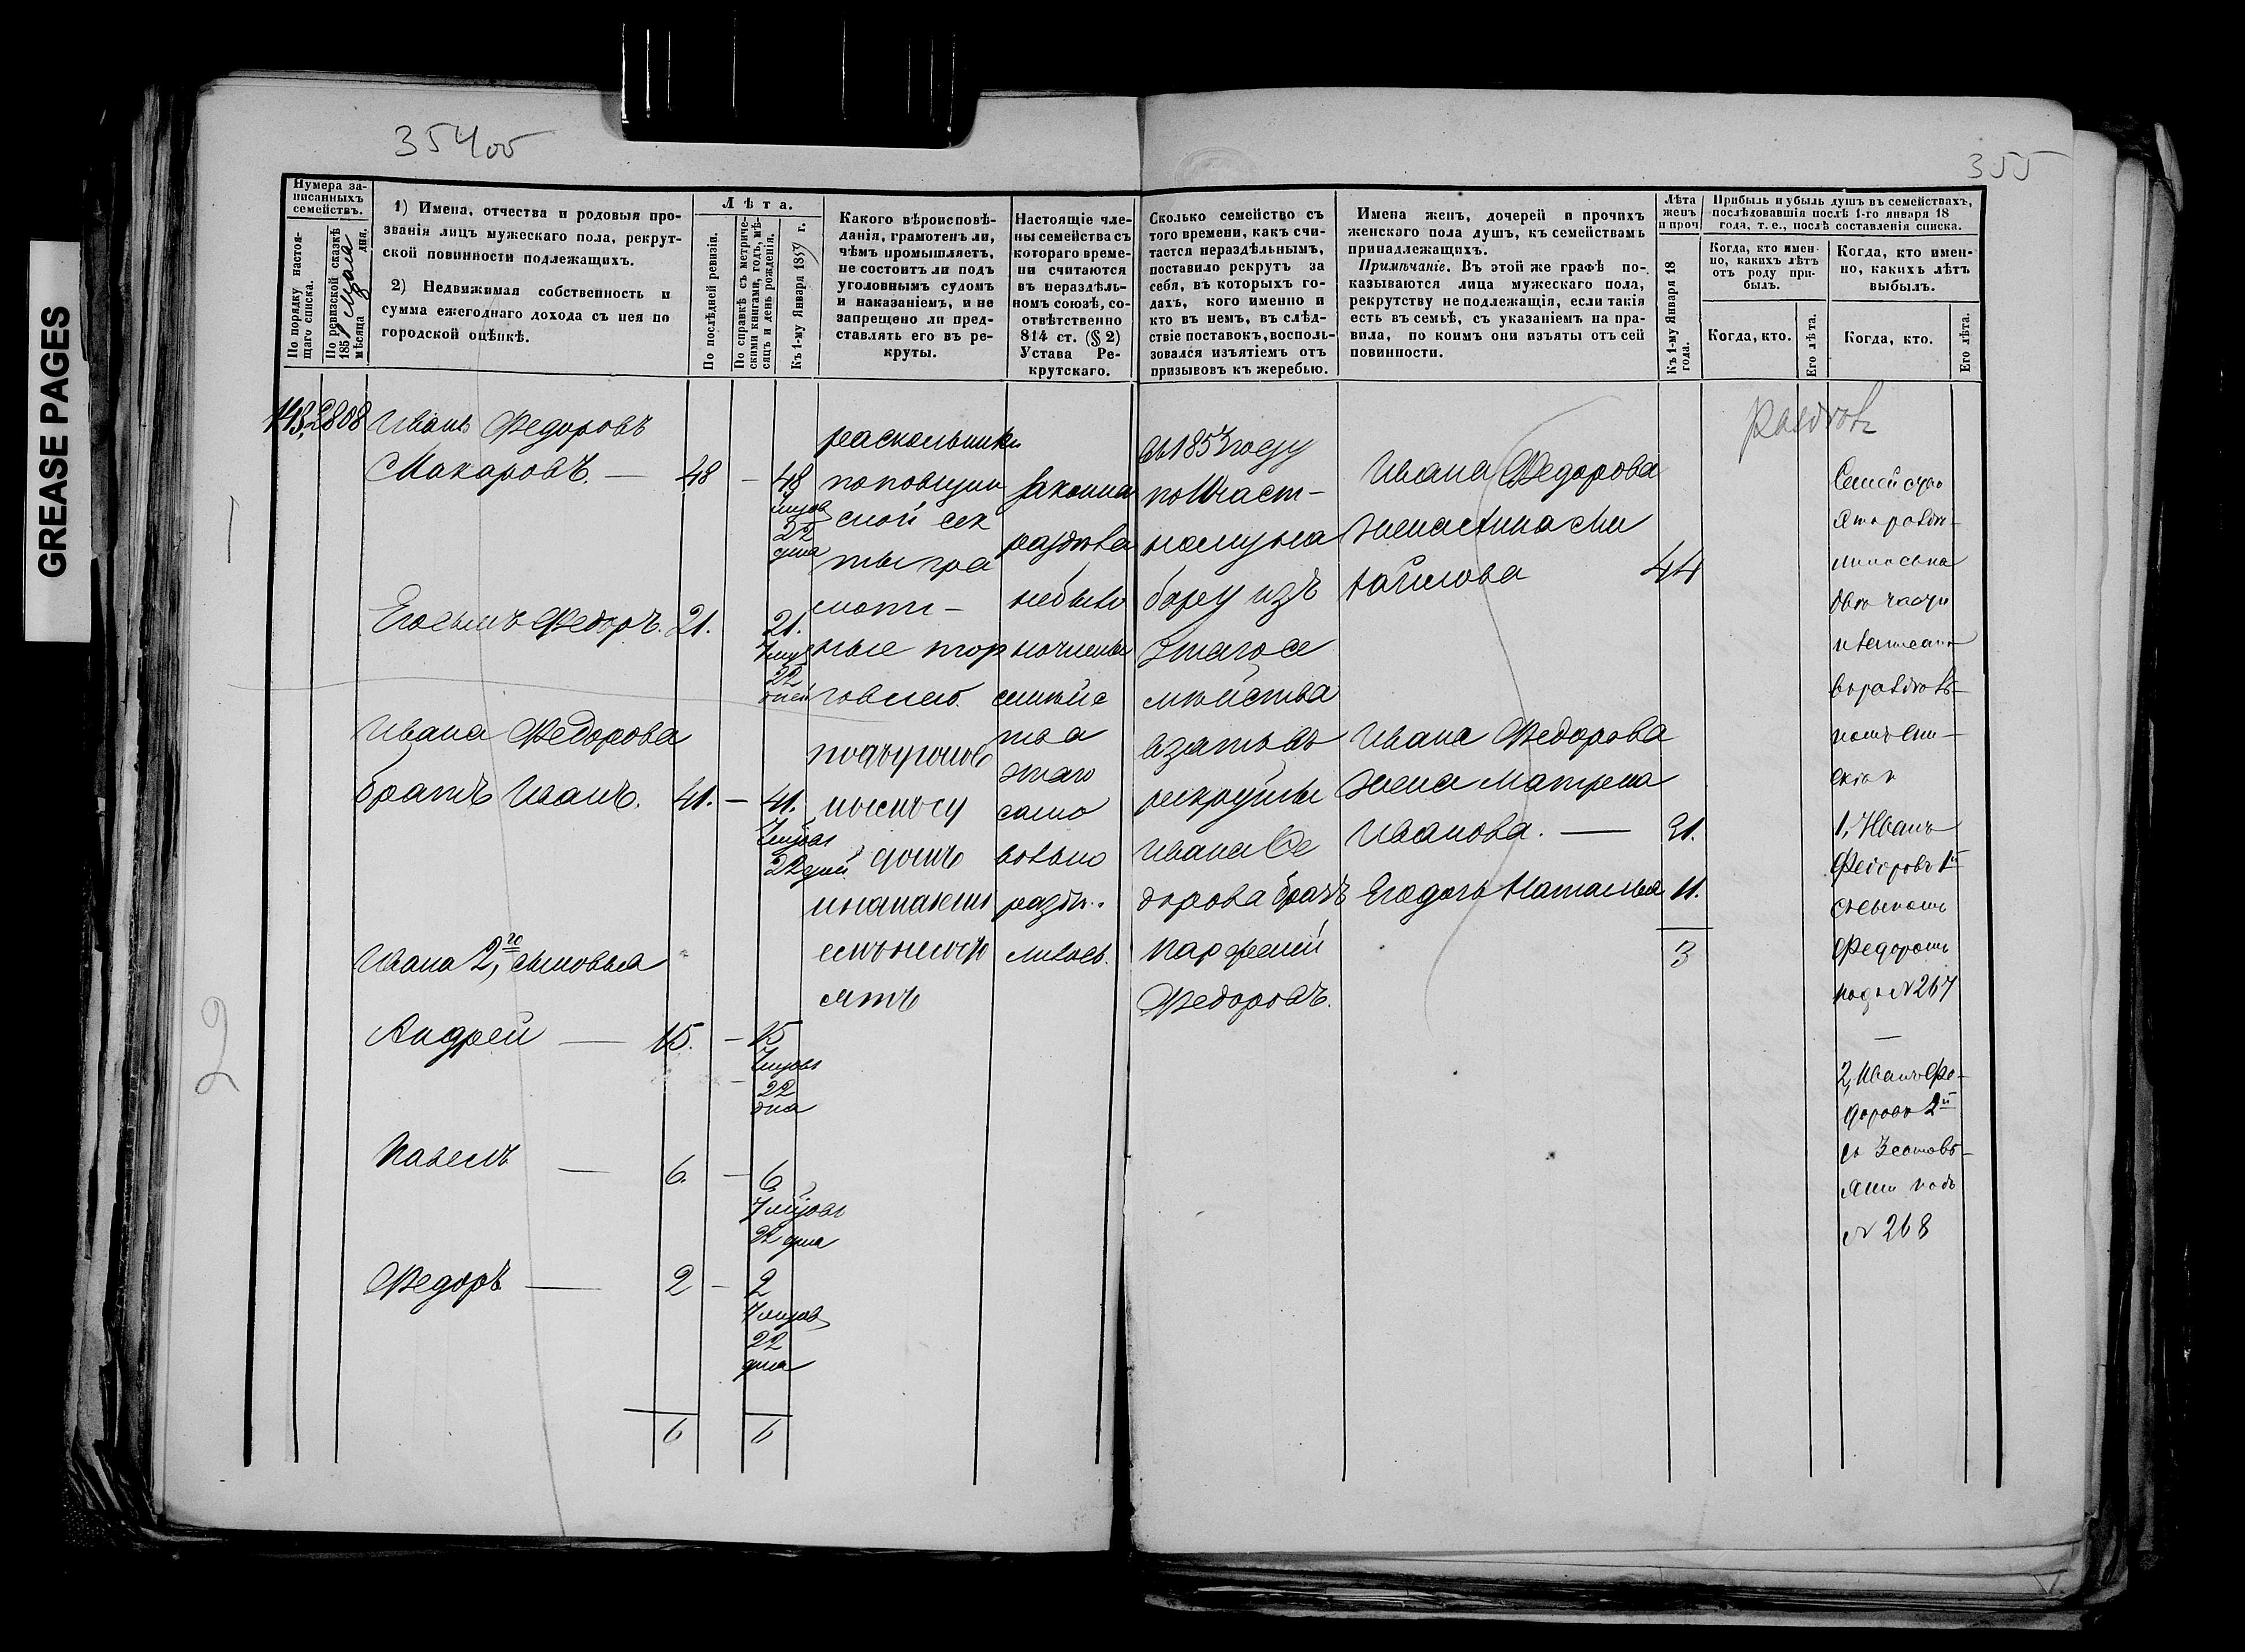 GREASE PAGES
35400
355
Нумера записанныхъ семействъ.
По порядку настоящаго списка.
По ревизской сказкѣ 185 мѣсяца дня.
1) Имена, отчества и родовыя прозванія лицъ мужескаго пола, рекрутской повинности подлежащихъ.
2) Недвижимая собственность и сумма ежегоднаго дохода съ нея по городской оцѣнкѣ.
Лѣта.
По послѣдней ревизіи.
По справкѣ съ метрическими книгами, годъ, мѣсяцъ и день рожденія.
Къ 1-му Января 1857 г.
Какого вѣроисповѣданія, грамотенъ ли, чѣмъ промышляетъ, не состоитъ ли подъ уголовнымъ судомъ и наказаніемъ, и не запрещено ли представлять его въ рекруты.
Настоящіе члены семейства съ котораго времени считаются въ нераздѣльномъ союзѣ, соотвѣтственно 814 ст. (§ 2) Устава Рекрутскаго.
Сколько семейство съ того времени, какъ считается нераздѣльнымъ, поставило рекрутъ за себя, въ которыхъ годахъ, кого именно и кто въ немъ, въ слѣдствіе поставокъ, воспользовался изъятіемъ отъ призывовъ къ жеребью.
Имена женъ, дочерей и прочихъ женскаго пола душъ, къ семействамъ принадлежащихъ.
Примѣчаніе. Въ этой же графѣ показываются лица мужескаго пола, рекрутству не подлежащія, если такія есть въ семьѣ, съ указаніемъ на правила, по коимъ они изъяты отъ сей повинности.
Лѣта женъ и проч
Къ 1-му Января 18 года.
Прибыль и убыль душъ въ семействахъ, послѣдовавшія послѣ 1-го января 18 года, т. е., послѣ составленія списка.
Когда, кто именно, какихъ лѣтъ отъ роду прибылъ.
Когда, кто именно, какихъ лѣтъ выбылъ.
Когда, кто.
Его лѣта.
Когда, кто.
Его лѣта.
Иванъ Федоровъ
Макаровъ. — 48 — 48
22 дня
Федоръ. 21. 21.
22 дней
Ивана Федорова
братъ Иванъ. 41. — 41.
22 дней
Ивана 2го, сыновья
Андрей — 15. — 15
22
дня
Павелъ — 6 — 6
7
22 дня
Федоръ — 2 — 2
7
22
дня
6 6
раскольники
поповщин
ской сек
ты гра
мот
ные тор
говлею.
законна
раздѣла
небыло
семейс
тва
этаго
само
вольно
въ 1853 году
бору изъ
этаго се
мейства
взятъ въ
рекруты
Ивана Фе
дорова братъ
Парфений
Федоровъ.
Ивана Федорова
жена Анна Ми
хайлова 44
Ивана Федорова
жена Матрена
Иванова. — 31.
Его дочь Наталья 11.
3
раздѣлъ
Семейство
1, Иванъ
Федоровъ 1й
съ сыномъ
Федоромъ
подъ № 267
—
2, Иванъ Фе-
доровъ 2й
съ 3 сыновь-
ями подъ
№ 268
1
2